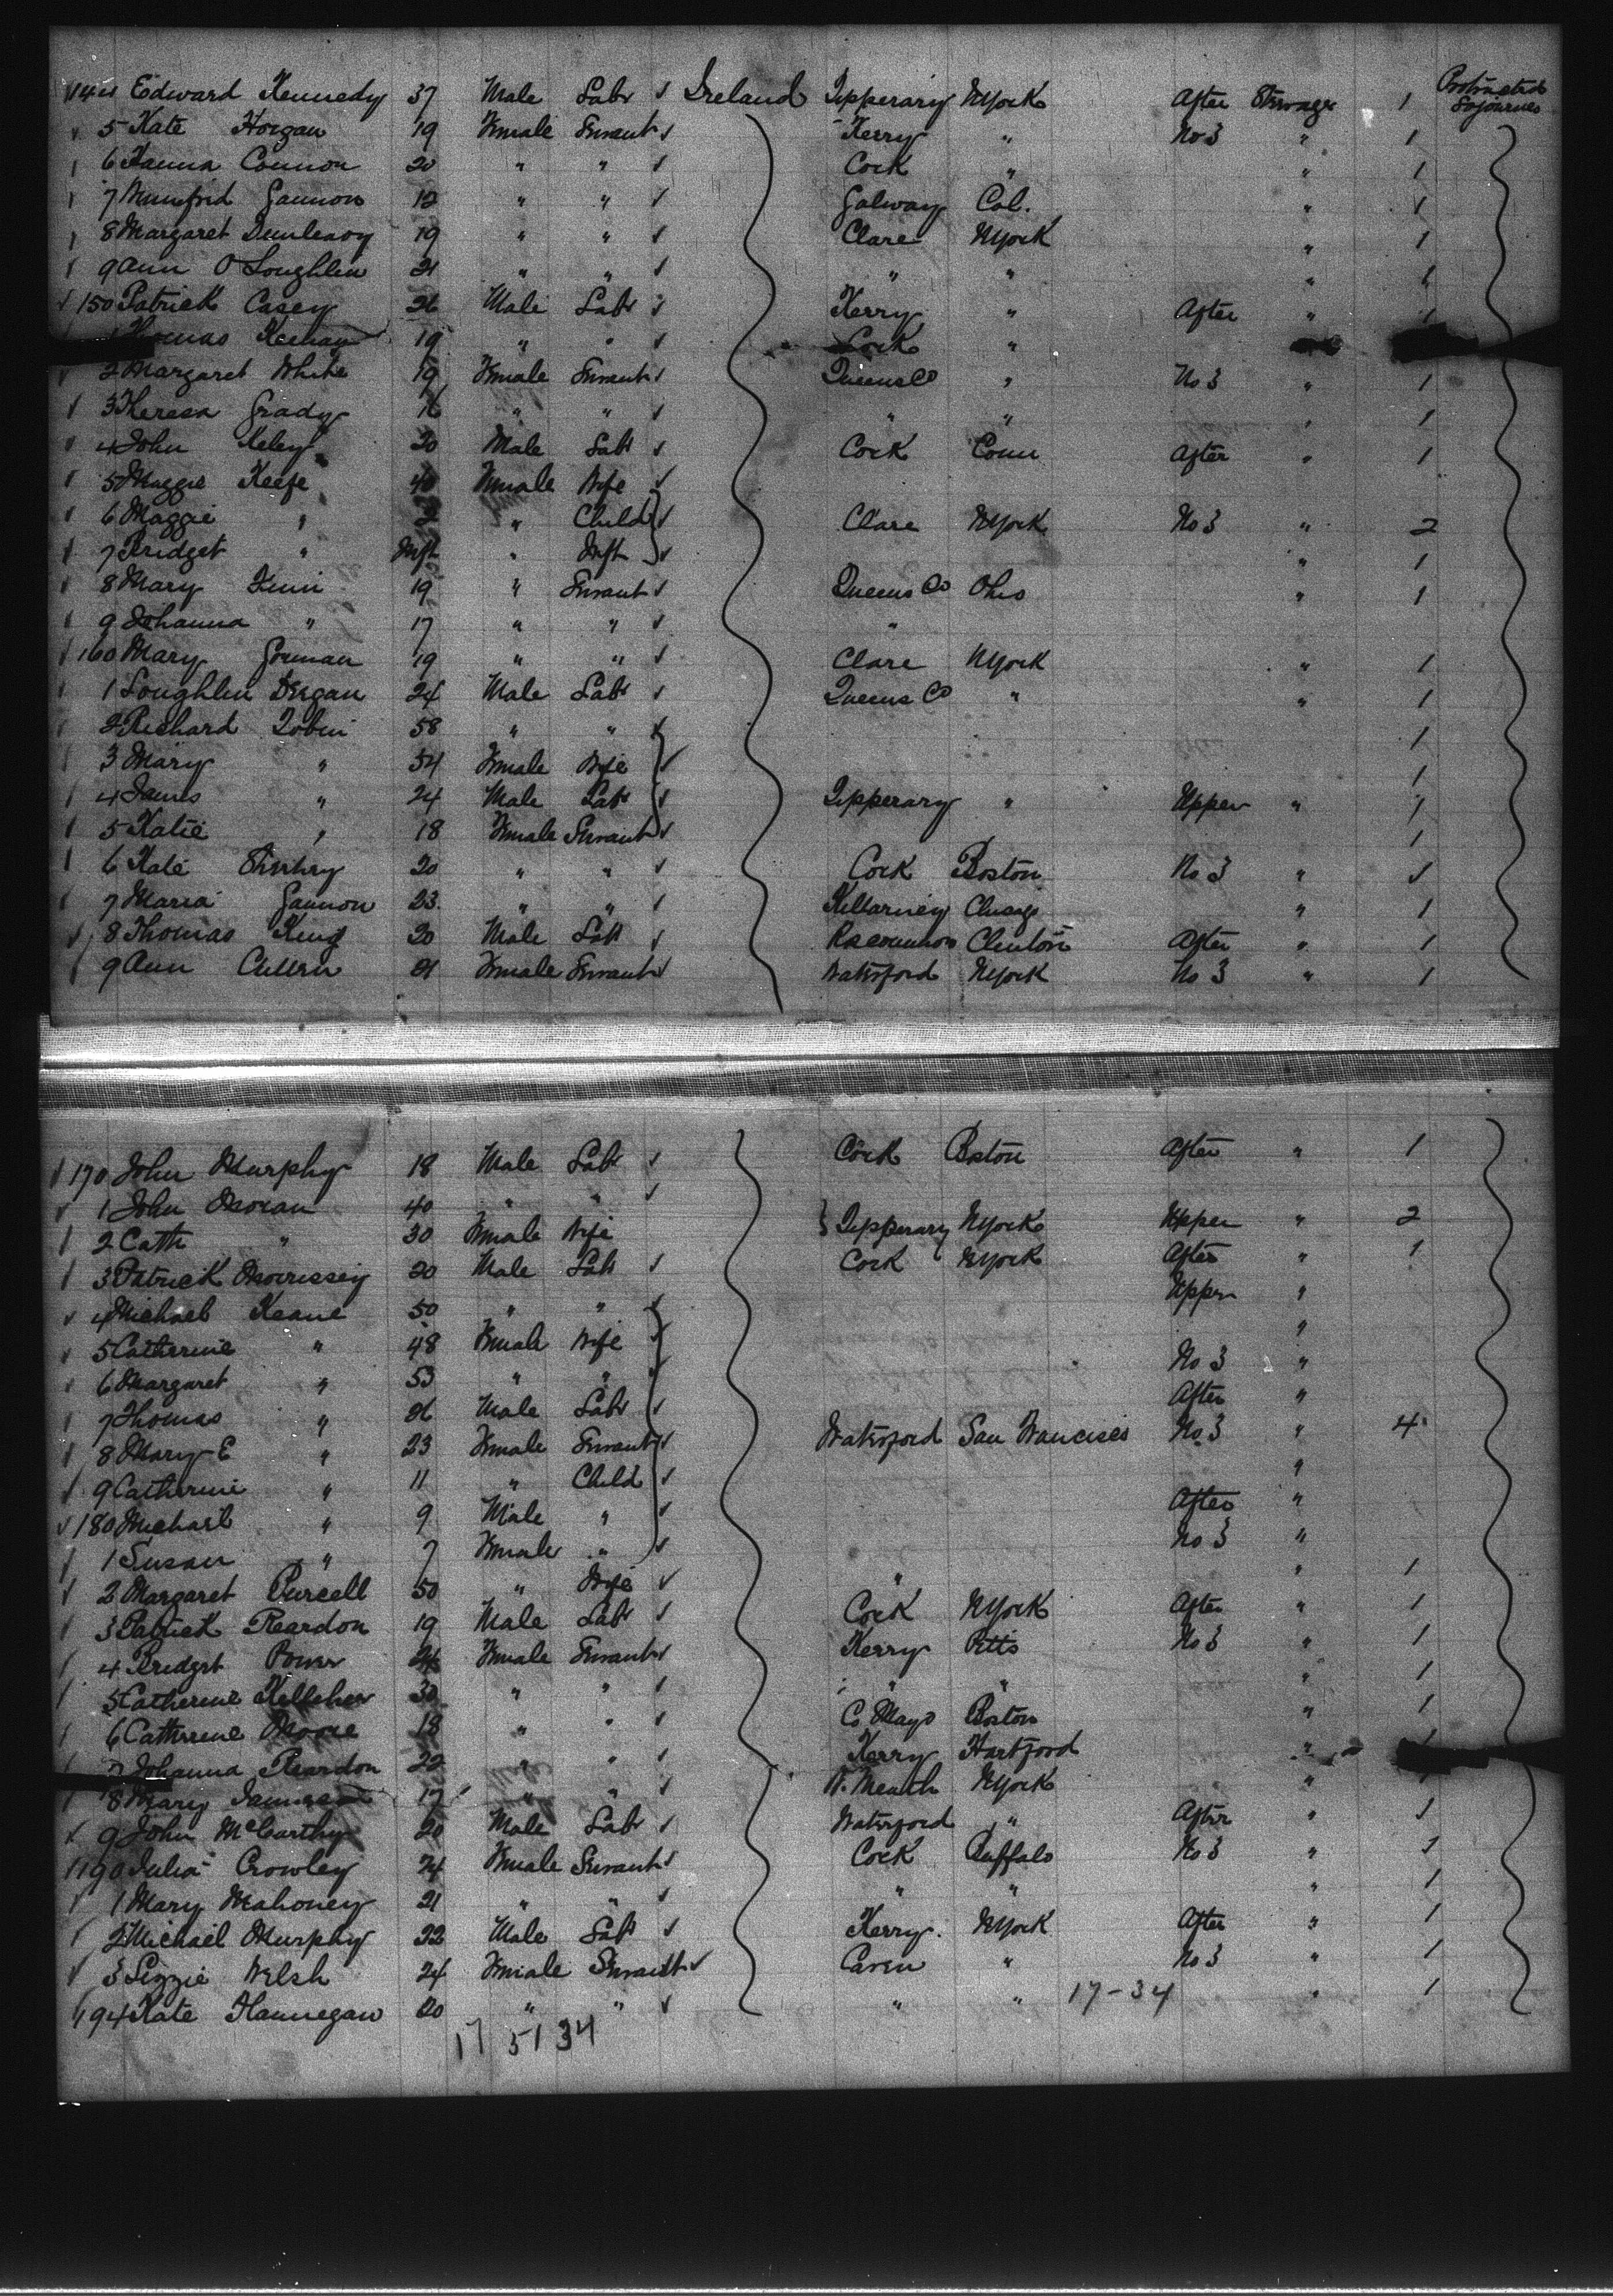 144 Edward Kennedy 37 Male Labr Ireland Tipperary NYork After Steerage 1 Protracted Sojourner
5 Kate Horgan 19 Female Servant Kerry " No 3 " 1
6 Hanna Connor 20 " " Cork " " 1
7 Gannon 12 " " Galway Cal. " 1
8 Margaret Dunleavy 19 " " Clare NYork " 1
9 Ann O'Loughlin 21 " " " " " 1
150 Patrick Casey 26 Male Labr Kerry " After " 1
Thomas 19 " " Cork "
2 Margaret White 19 Female Servant Queens Co " No 3 " 1
3 Theresa Grady 16 " " " " " 1
4 John 20 Male Labr Cork Conn After " 1
5 Maggie Keefe 40 Female Wife
6 Maggie " " Child Clare NYork No 3 " 2
7 Bridget " Inft " Inft " 1
8 Mary 19 " Servant Queens Co Ohio " 1
9 Johanna " 17 " " "
160 Mary Gorman 19 " " Clare NYork " 1
1 Loughlin 24 Male Labr Queens Co " " 1
2 Richard Tobin 58 " " 1
3 Mary " 54 Female Wife 1
4 James " 24 Male Labr Tipperary " Upper " 1
5 Katie " 18 Female Servant 1
6 Kate 20 " " Cork Boston No 3 " 1
7 Maria Gannon 23 " " Killarney Chicago " 1
8 Thomas King 20 Male Labr Roscommon Clinton After " 1
9 Ann Cullen 21 Female Servant Waterford NYork No 3 " 1
170 John Murphy 18 Male Labr Cork Boston After " 1
1 John Moran 40 " "
2 Cath " 30 Female Wife Tipperary NYork Upper " 2
3 Patrick Morrissey 20 Male Labr Cork NYork After " 1
4 Michael Keane 50 " " Upper "
5 Catherine " 48 Female Wife "
6 Margaret " 53 " " No 3 "
7 Thomas " 26 Male Labr After "
8 Mary E " 23 Female Servant Waterford San Francisco No 3 " 4
9 Catherine " 11 " Child "
180 Michael " 9 Male " After "
1 Susan " 7 Female " No 3 "
2 Margaret Purcell 50 " Wife " " 1
3 Patrick Reardon 19 Male Labr Cork NYork After " 1
4 Bridget Power Female Servant Kerry Pitts No 3 " 1
5 Catherine Kelleher 30 " " " " " 1
6 Catherine Moore 18 " " Co Mayo Boston " 1
7 Johanna Reardon 22 " " Kerry Hartford " 1
8 Mary 17 " " W. Meath NYork "
9 John McCarthy 20 Male Labr Waterford " After " 1
190 Julia Crowley 24 Female Servant Cork Buffalo No 3 " 1
1 Mary Mahoney 21 " " " " " 1
2 Michael Murphy 22 Male Labr Kerry NYork After " 1
3 Lizzie Welsh 24 Female Servant Caven " No 3 " 1
194 Kate Hannegan 20 " " " " 17-34 " 1
17 51 34